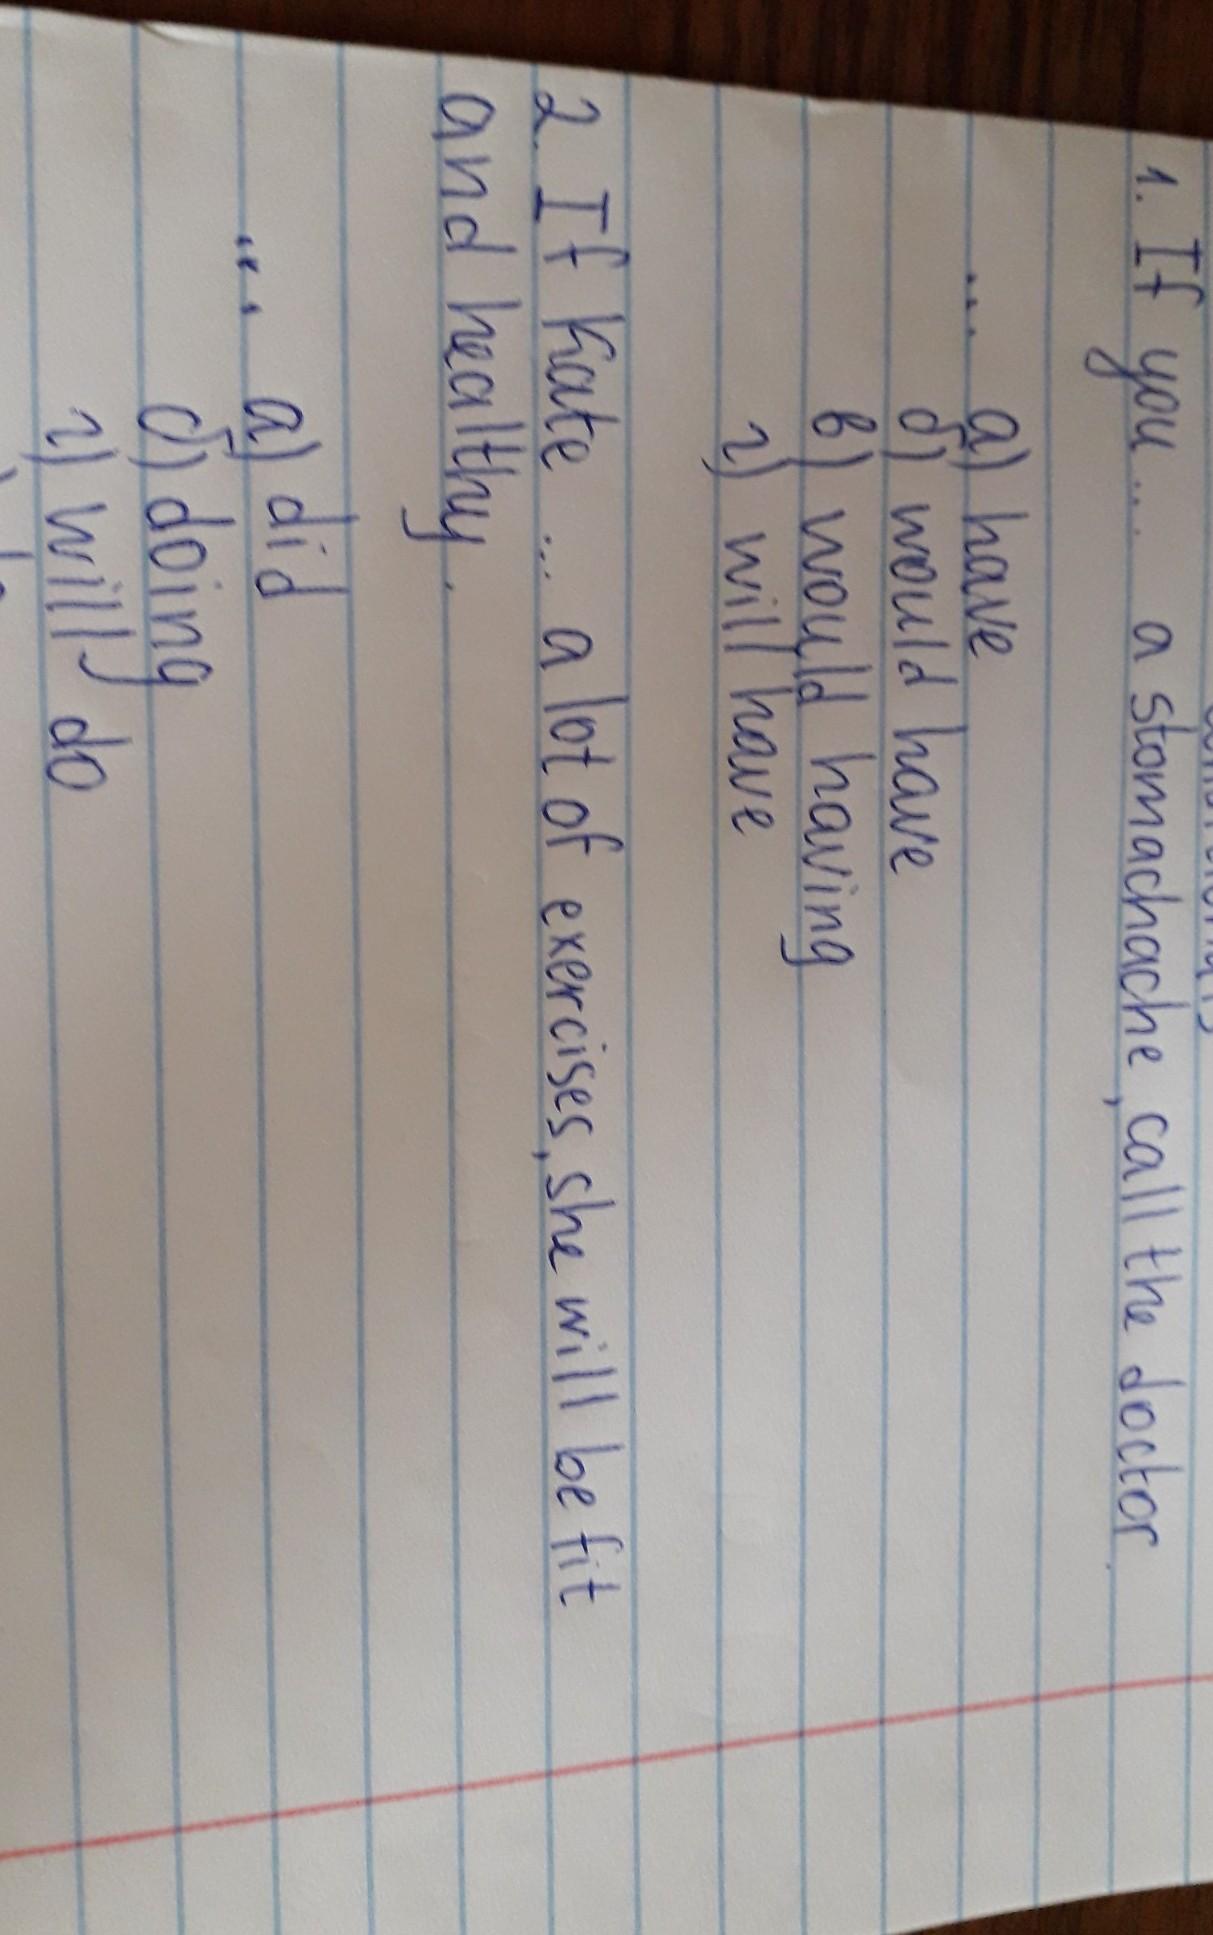 1. If you ... a stomachache, call the doctor.
... a) have
б) would have
в) would having
г) will have
2. If Kate ... a lot of exercises, she will be fit
and healthy.
... a) did
б) doing
г) will do